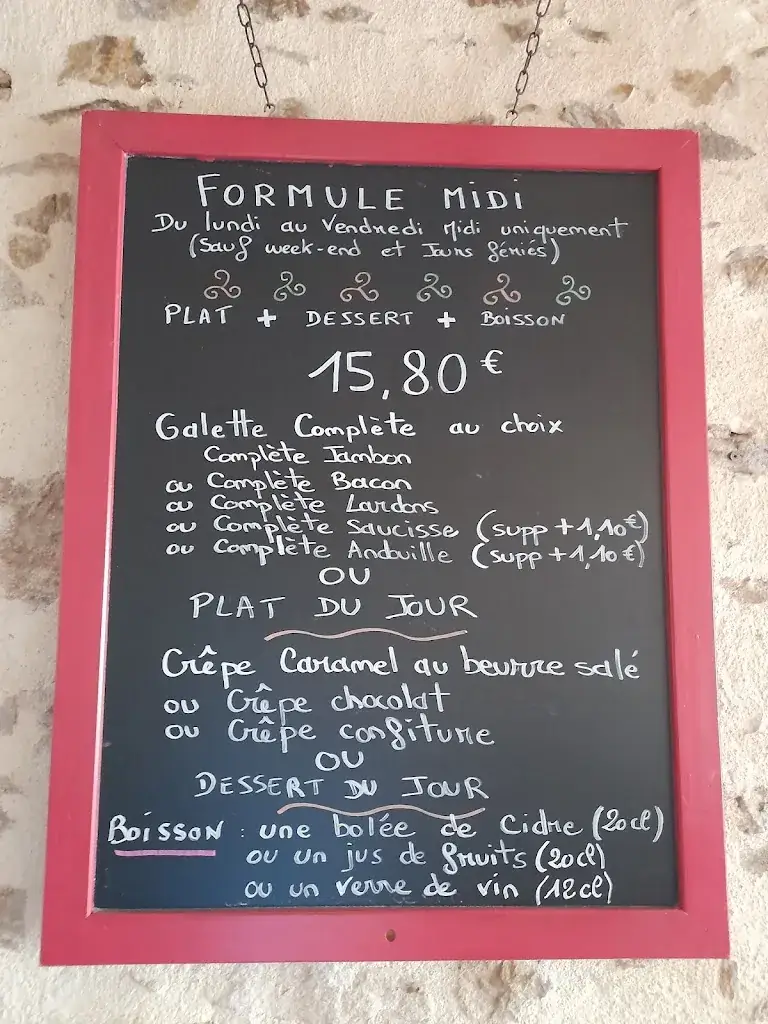 FORMULE MiDi
Du lundi au Vendredi Midi uniquement
(Sauf week-end et Jours fériés)
PLAT + DESSERT + BOISSON
15,80€
Galette Complète au choix
Complète Jambon
ou Complète Bacon
ou Complète Lardons
ou Complète Saucisse (supp +1,10€)
ou Complète Andouille (supp +1,10€)
OU
PLAT DU JOUR
Crêpe Caramel au beurre salé
ou Crêpe chocolat
ou Crêpe confiture
OU
DESSERT DU JOUR
BOiSSON : une bolée de Cidre (20cl)
ou un jus de fruits (20cl)
ou un verre de vin (12cl)